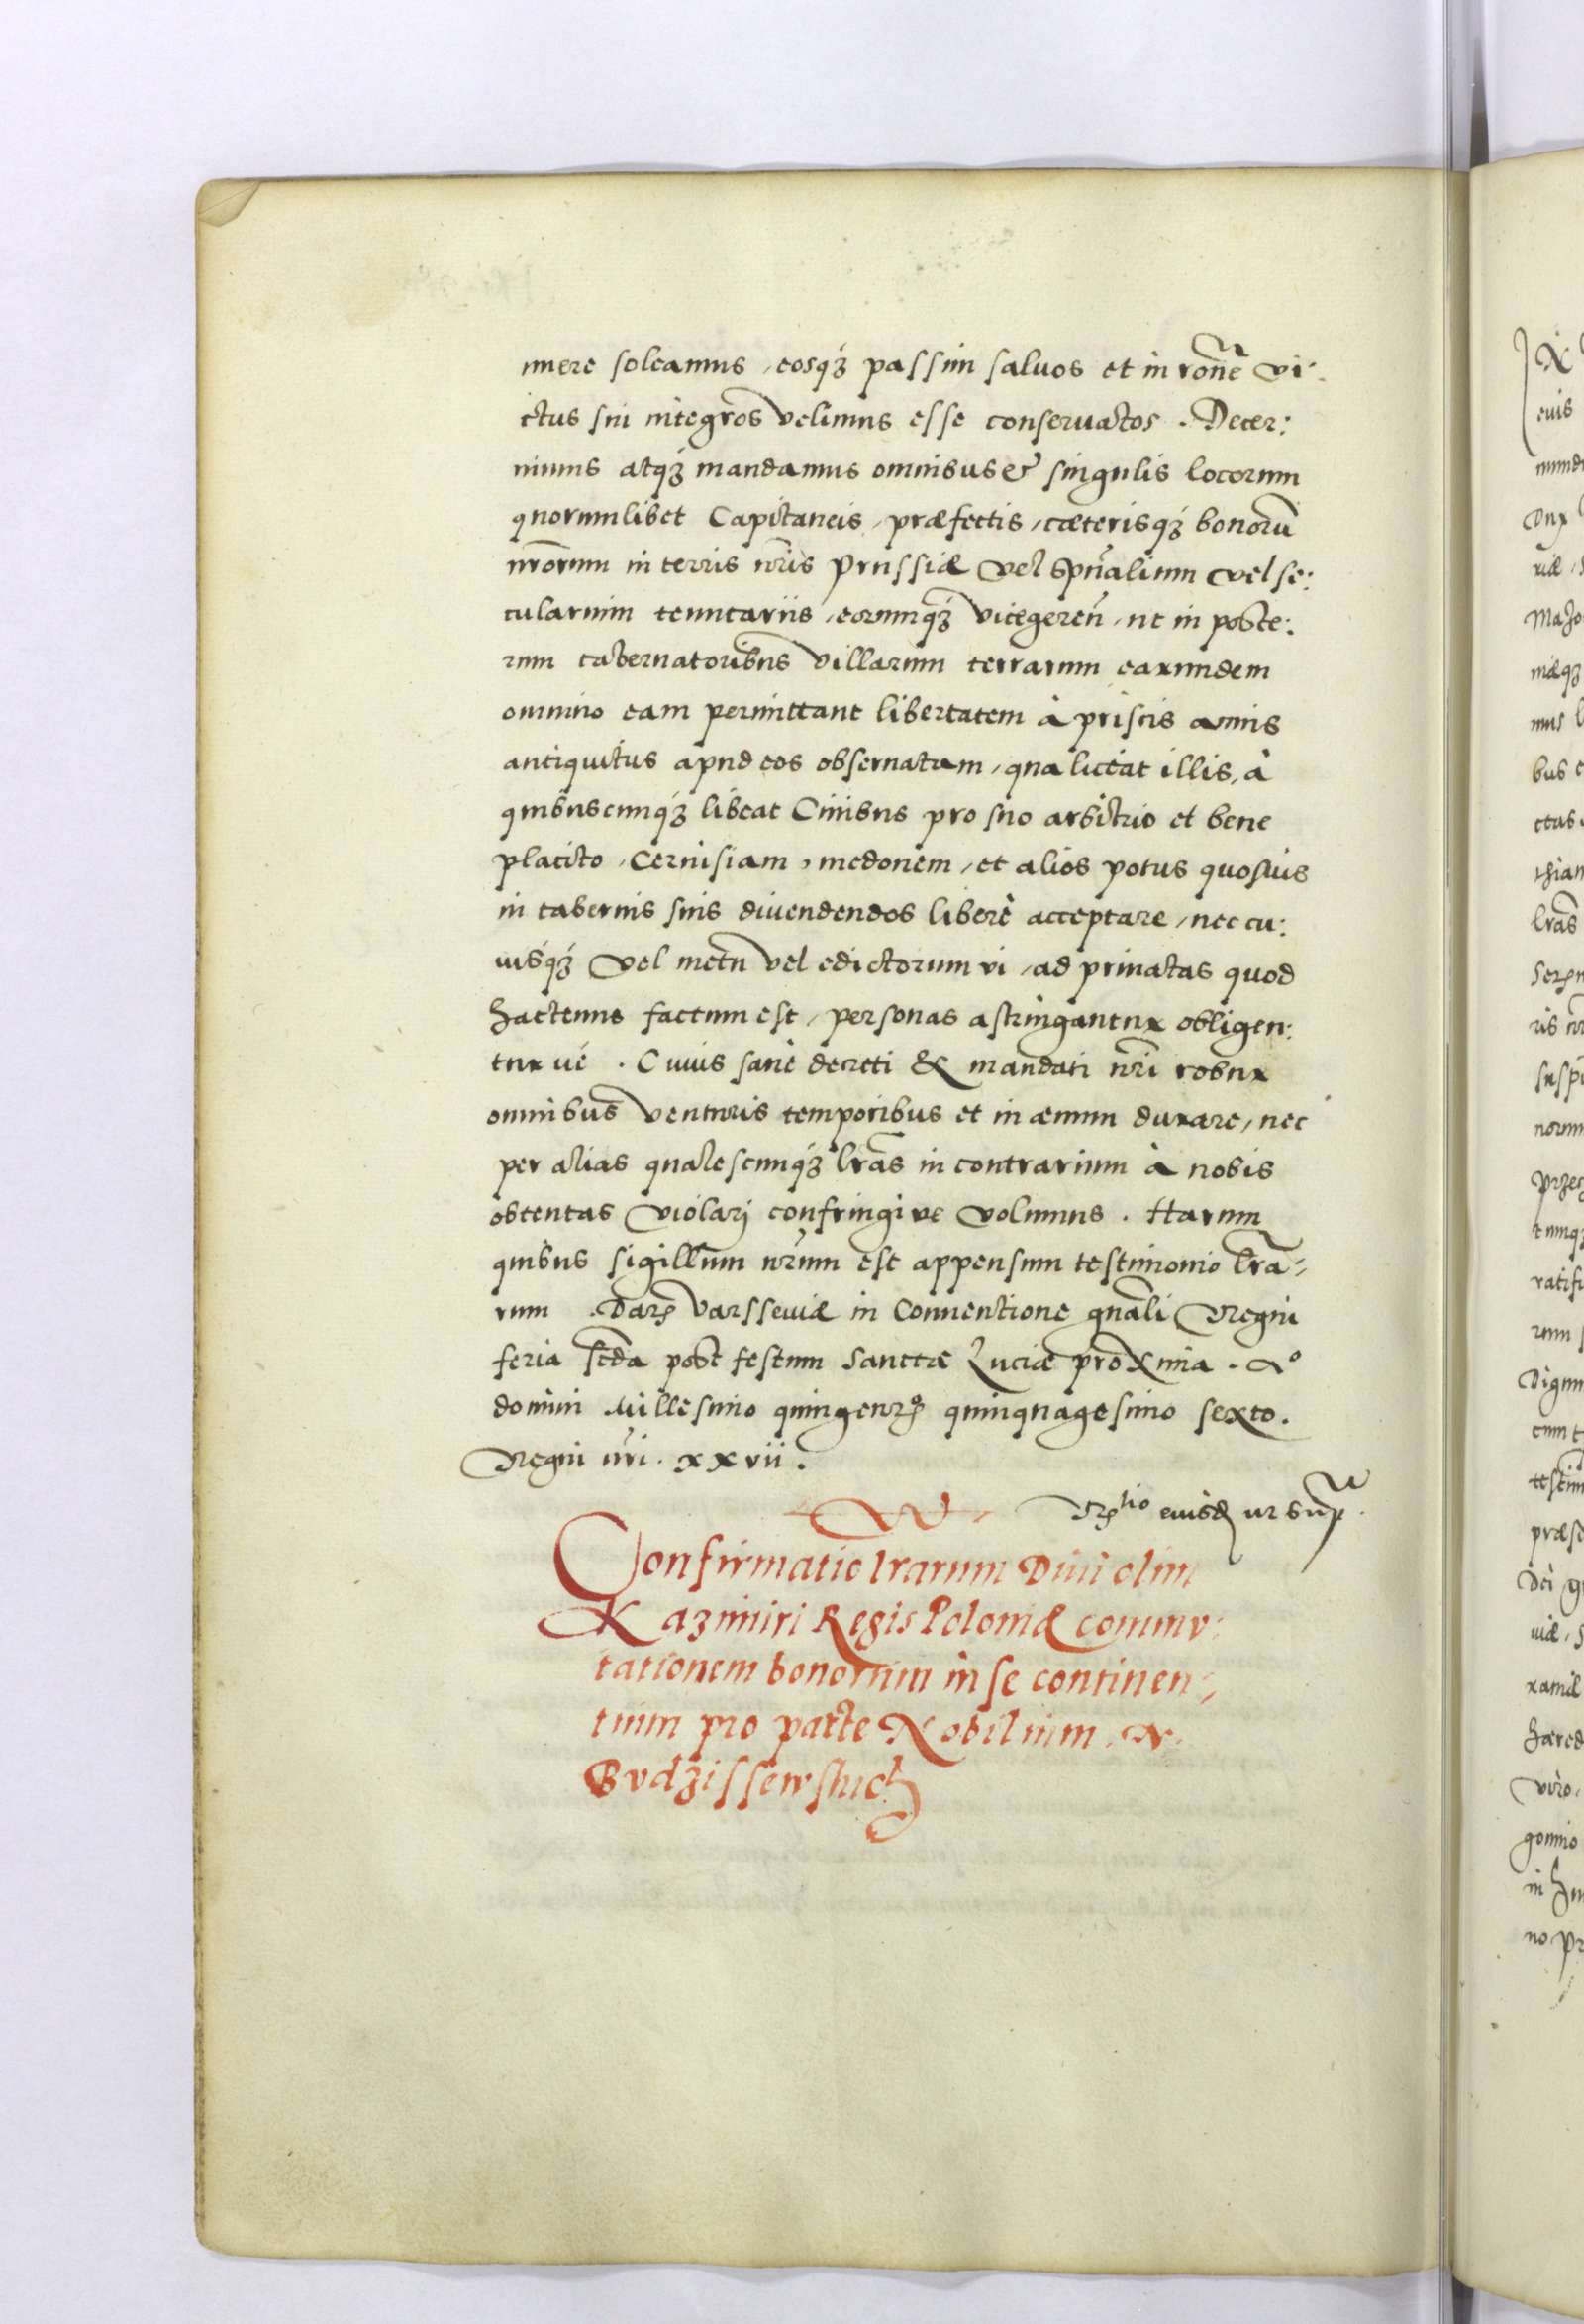 mere soleamus, eosq3 passim saluos et in rone vi:
ctus sui integros velimus esse conseruatos. Decer:
nimus atq3 mandamus omnibus & singulis locorum
quorumlibet Capitaneis, præfectis, cæterisq3 bonorū
nrōrum in terris nris Prussiæ vel Spūalium vel se:
cularium tenutariis, eorumq3 vicegereñ, ut in poste:
rum tabernatoribus villarum terrarum earundem
omnino eam permittant libertatem à priscis annis
antiquitus apud eos obseruatam, qua liceat illis, à
quibuscunq3 libeat Ciuibus pro suo arbitrio et bene
placito, Ceruisiam, medonem, et alios potus quosuis
in tabernis suis diuendendos liberè acceptare, nec cu:
iusq3 vel metu vel edictorum vi, ad priuatas quod
hactenus factum est, personas astringantur obligen:
tur ué. Cuius sanè decreti & mandati nri robur
omnibus venturis temporibus et in æuum durare, nec
per alias qualescunq3 lrās in contrarium à nobis
obtentas violarj confringi ve volumus. Harum
quibus sigillum nrūm est appensum testimonio lrā:
rum. Dat Varsseuiæ in Conuentione gnāli Regni
feria scdā post festum sanctæ Luciæ proxima. Ao
domini Millesimo quingento quinquagesimo sexto.
Regni nri. xxvii.
Rtio eiusd ut sup
Confirmatio lrarum Diui olim
Kazimiri Regis Poloniæ commv:
tationem bonorum in se continen:
tium pro parte Nobilium. N.
Bvdzissewskich